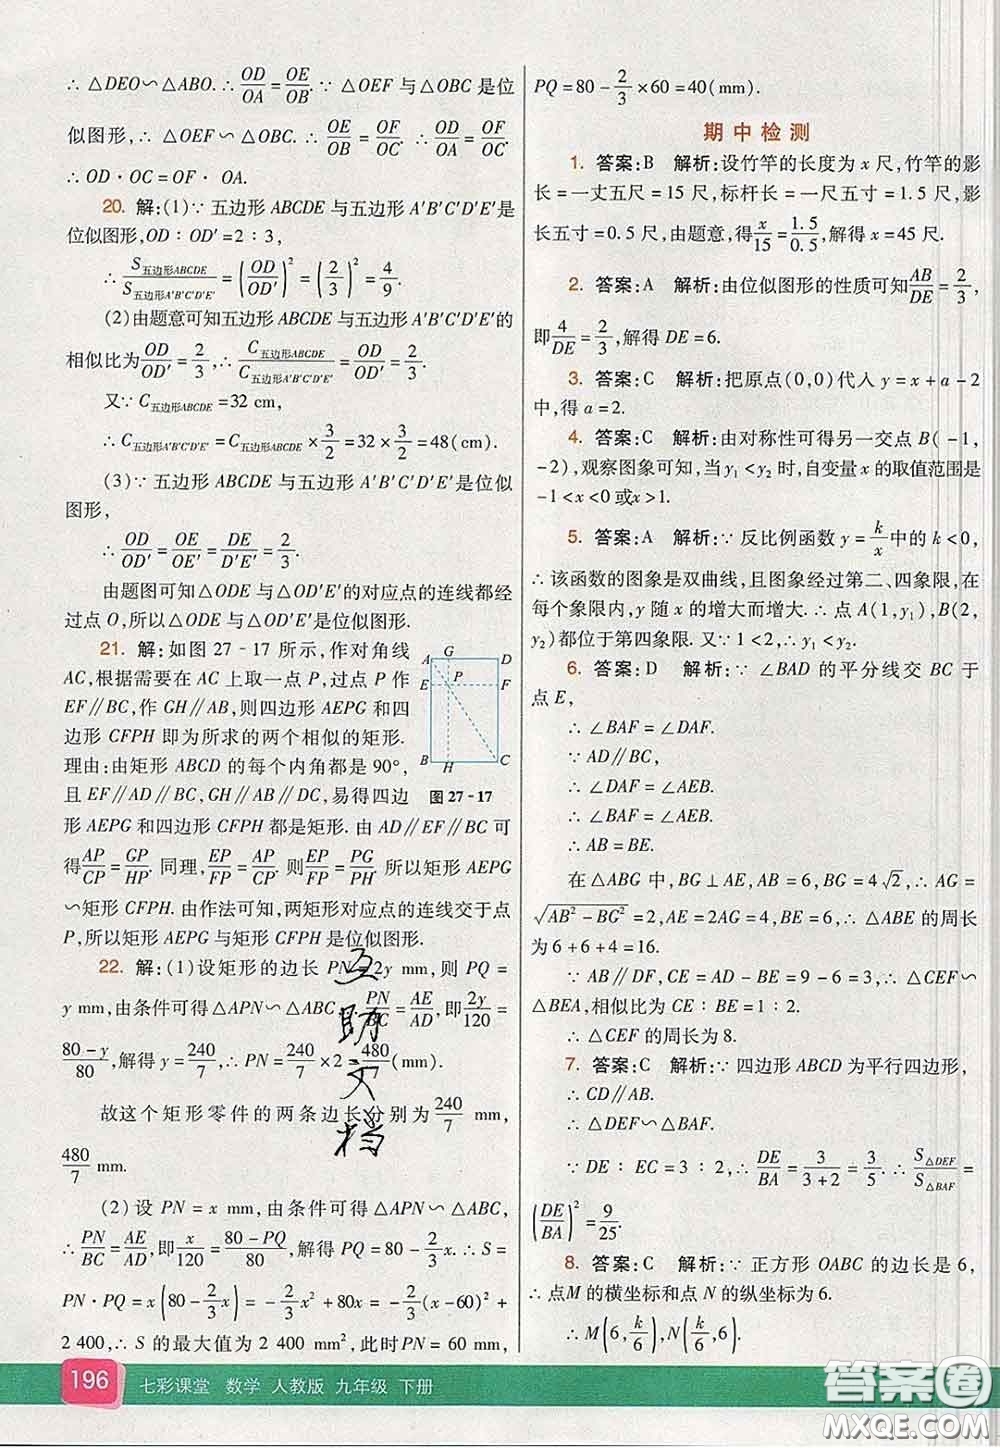 ∴ △DEO∽△ABO. ∴ OD/OA = OE/OB. ∵ △OEF 与△OBC 是位
似图形,∴ △OEF∽△OBC. ∴ OE/OB = OF/OC. ∴ OD/OA = OF/OC.
∴ OD·OC=OF·OA.
20. 解:(1)∵ 五边形 ABCDE 与五边形 A′B′C′D′E′是
位似图形,OD∶OD′=2∶3,
∴ S五边形ABCDE/S五边形A′B′C′D′E′ = (OD/OD′)² = (2/3)² = 4/9.
(2)由题意可知五边形 ABCDE 与五边形 A′B′C′D′E′的
相似比为 OD/OD′ = 2/3,∴ C五边形ABCDE/C五边形A′B′C′D′E′ = OD/OD′ = 2/3.
又∵ C五边形ABCDE=32 cm,
∴ C五边形A′B′C′D′E′ = C五边形ABCDE × 3/2 = 32 × 3/2 = 48(cm).
(3)∵ 五边形 ABCDE 与五边形 A′B′C′D′E′是位似
图形,
∴ OD/OD′ = OE/OE′ = DE/D′E′ = 2/3.
由题图可知△ODE 与△OD′E′的对应点的连线都经
过点 O,所以△ODE 与△OD′E′是位似图形.
21. 解:如图 27-17 所示,作对角线
AC,根据需要在 AC 上取一点 P,过点 P 作
EF∥BC,作 GH∥AB,则四边形 AEPG 和四
边形 CFPH 即为所求的两个相似的矩形.
理由:由矩形 ABCD 的每个内角都是 90°,
且 EF∥AD∥BC,GH∥AB∥DC,易得四边
形 AEPG 和四边形 CFPH 都是矩形. 由 AD∥EF∥BC 可
得 AP/CP = GP/HP. 同理, EP/FP = AP/CP. 则 EP/FP = PG/PH. 所以矩形 AEPG
∽矩形 CFPH. 由作法可知,两矩形对应点的连线交于点
P,所以矩形 AEPG 与矩形 CFPH 是位似图形.
A G D
E P F
B H C
图 27-17
22. 解:(1)设矩形的边长 PN=2y mm,则 PQ=
y mm,由条件可得△APN∽△ABC, PN/BC = AE/AD,即 2y/120 =
(80-y)/80,解得 y = 240/7,∴ PN = 240/7 × 2 = 480/7 (mm).
故这个矩形零件的两条边长分别为 240/7 mm,
480/7 mm.
(2)设 PN=x mm,由条件可得△APN∽△ABC,
∴ PN/BC = AE/AD,即 x/120 = (80-PQ)/80,解得 PQ = 80 - 2/3 x. ∴ S =
PN·PQ = x(80 - 2/3 x) = -2/3 x² + 80x = -2/3 (x-60)² +
2 400,∴ S 的最大值为 2 400 mm²,此时 PN=60 mm,
互助文档
PQ = 80 - 2/3 ×60 = 40(mm).
期中检测
1. 答案:B 解析:设竹竿的长度为 x 尺,竹竿的影
长=一丈五尺=15 尺,标杆长=一尺五寸=1.5 尺,影
长五寸=0.5 尺,由题意,得 x/15 = 1.5/0.5,解得 x=45 尺.
2. 答案:A 解析:由位似图形的性质可知 AB/DE = 2/3,
即 4/DE = 2/3,解得 DE=6.
3. 答案:C 解析:把原点(0,0)代人 y=x+a-2
中,得 a=2.
4. 答案:C 解析:由对称性可得另一交点 B(-1,
-2),观察图象可知,当 y₁<y₂ 时,自变量 x 的取值范围是
-1<x<0 或x>1.
5. 答案:A 解析:∵ 反比例函数 y = k/x 中的 k<0,
∴ 该函数的图象是双曲线,且图象经过第二、四象限,在
每个象限内,y 随 x 的增大而增大. ∴ 点 A(1,y₁),B(2,
y₂)都位于第四象限. 又∵ 1<2,∴ y₁<y₂.
6. 答案:D 解析:∵ ∠BAD 的平分线交 BC 于
点 E,
∴ ∠BAF=∠DAF.
∵ AD∥BC,
∴ ∠DAF=∠AEB.
∴ ∠BAF=∠AEB.
∴ AB=BE.
在△ABG 中,BG⊥AE,AB=6,BG=4√2,∴ AG=
√(AB²-BG²)=2,AE=2AG=4,∴ △ABE 的周长
为 6+6+4=16.
∵ AB∥DF,CE=AD-BE=9-6=3,∴ △CEF∽
△BEA,相似比为 CE∶BE=1∶2.
∴ △CEF 的周长为 8.
7. 答案:C 解析:∵ 四边形 ABCD 为平行四边形,
∴ CD∥AB.
∴ △DEF∽△BAF.
∵ DE∶EC=3∶2,∴ DE/BA = 3/(3+2) = 3/5. ∴ S△DEF/S△BAF =
(DE/BA)² = 9/25.
8. 答案:C 解析:∵ 正方形 OABC 的边长是 6,
∴ 点M 的横坐标和点 N 的纵坐标为 6.
∴ M(6, k/6),N(k/6, 6).
196 七彩课堂 数学 人教版 九年级 下册
答案圈
MXQE.COM